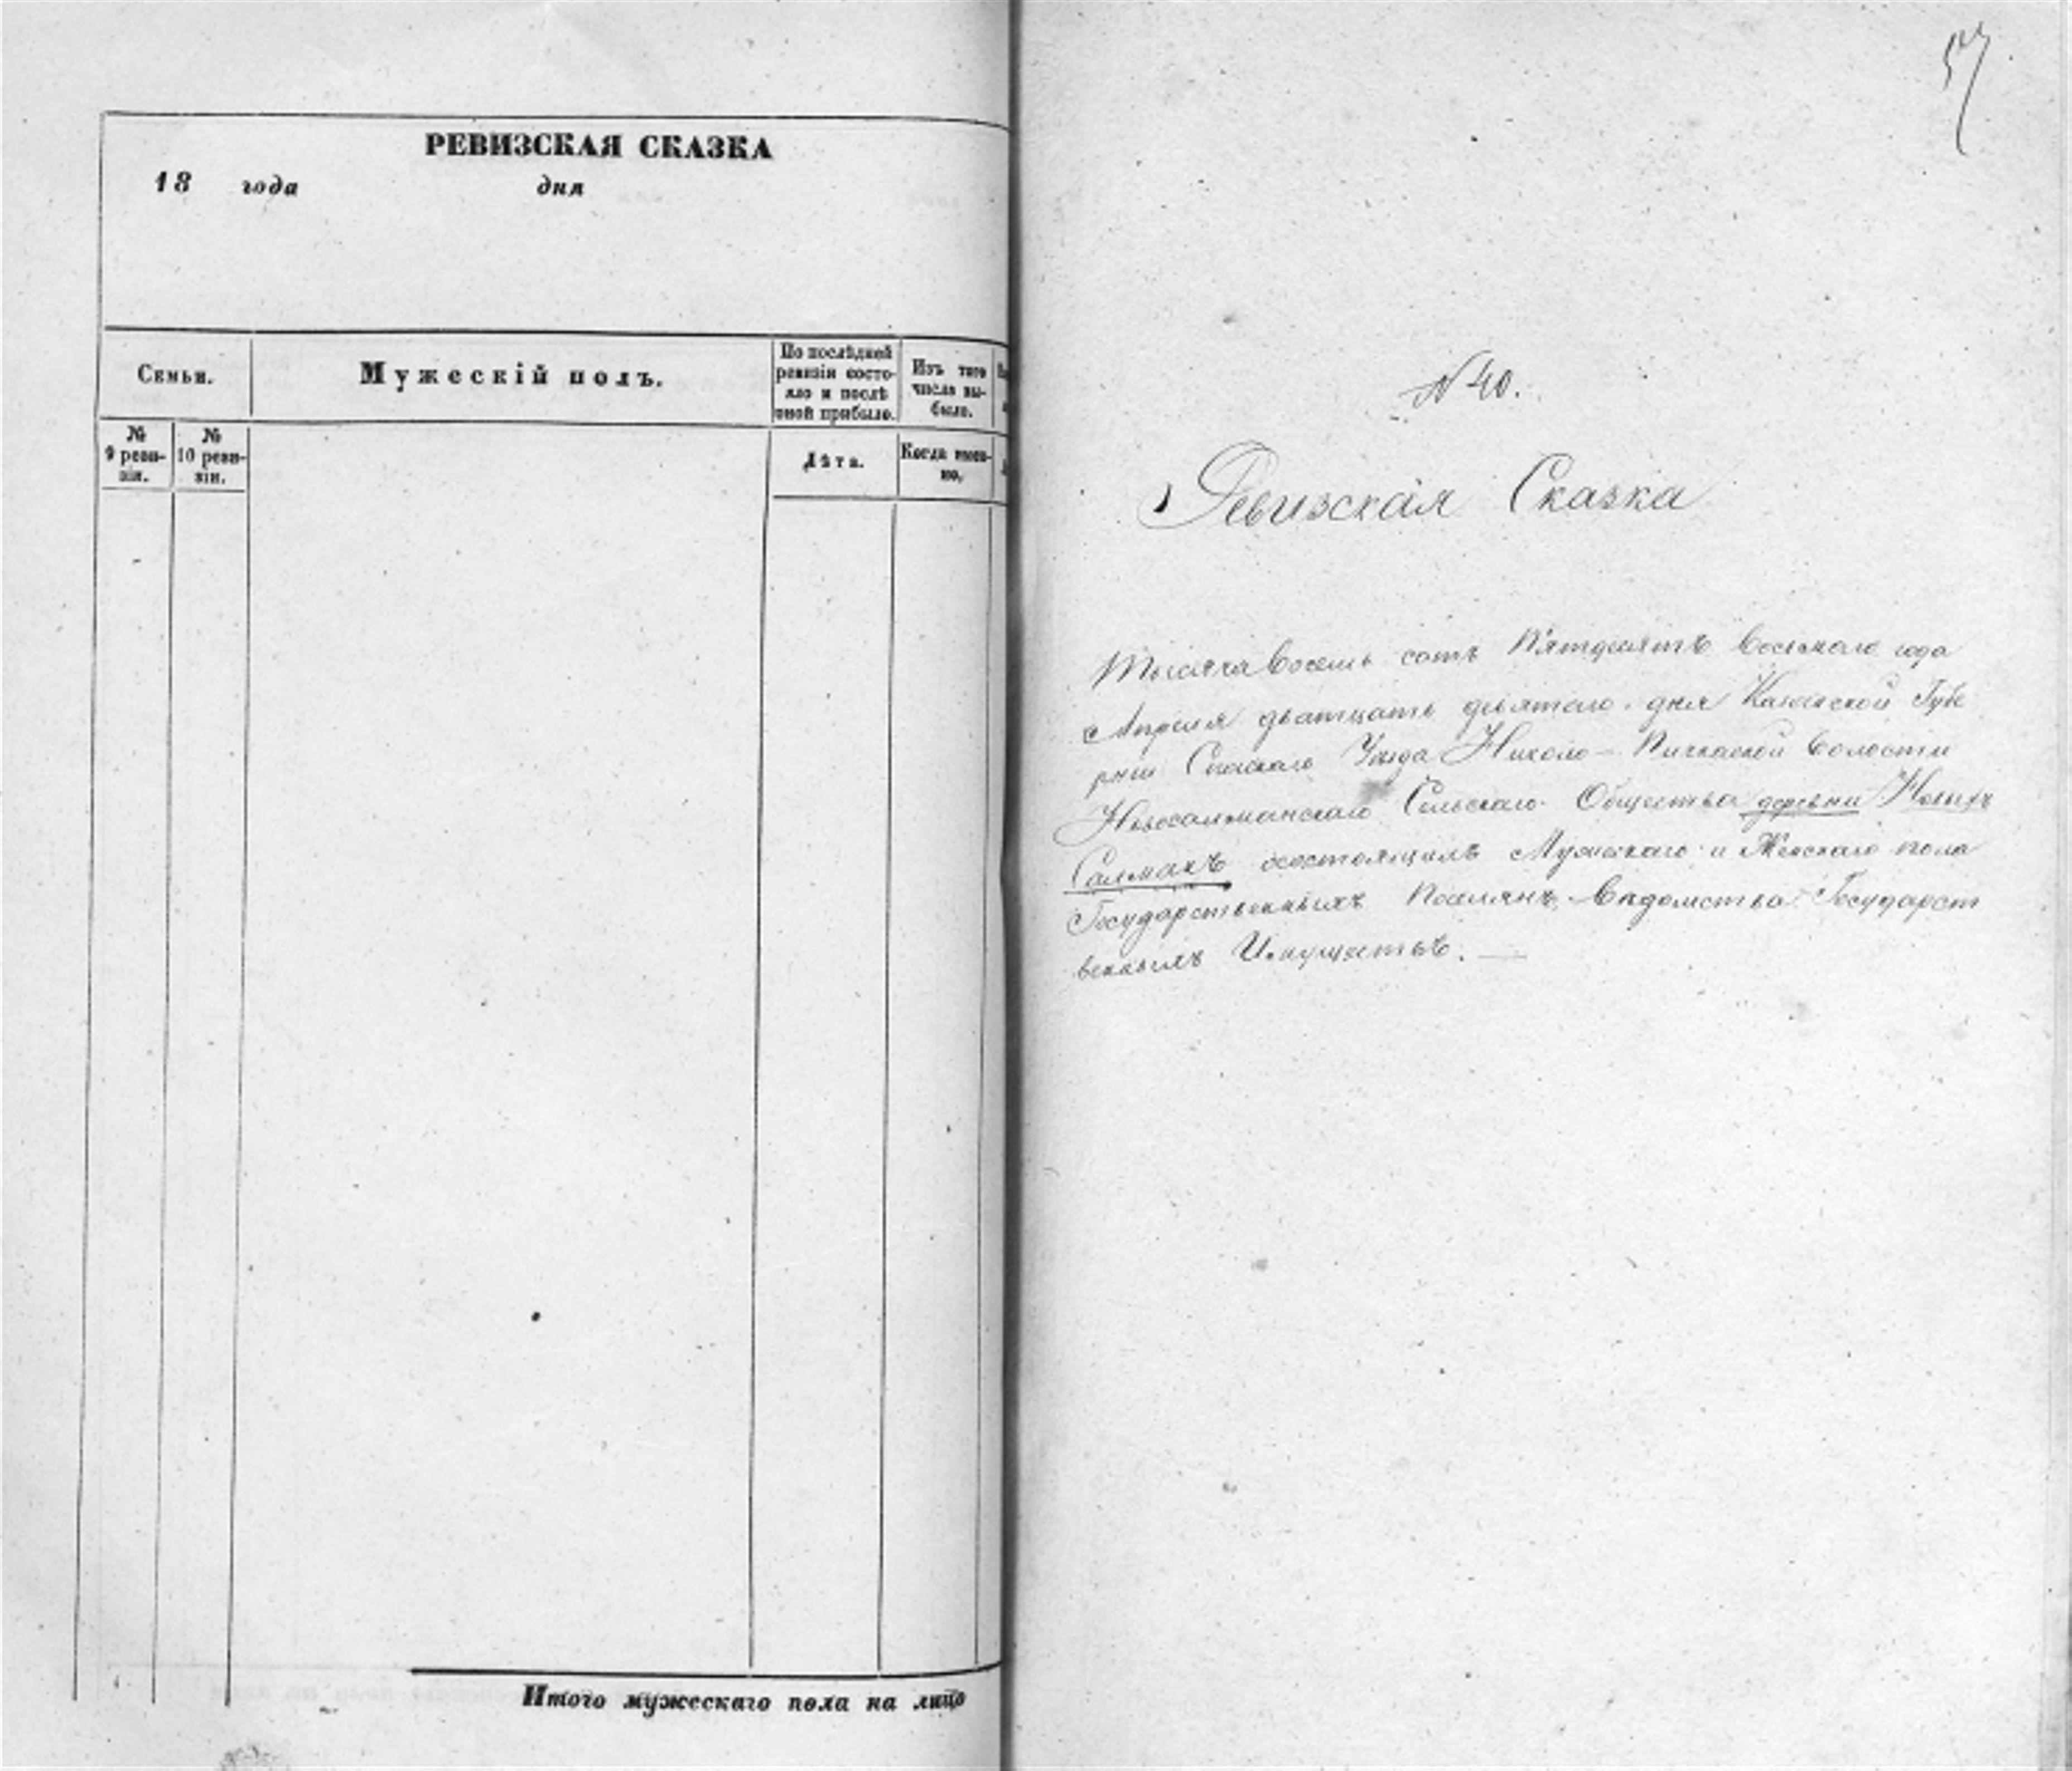 РЕВИЗСКАЯ СКАЗКА
18 года дня
Семьи.
Мужескій полъ.
По послѣдней
ревизіи состо-
яло и послѣ
оной прибыло.
Изъ того
числа вы-
было.
№
9 реви-
зіи.
№
10 реви-
зіи.
Лѣта.
Когда имен-
но.
Итого мужескаго пола на лицо
57
№ 40.
Ревизская Сказка
Тысяча восемь сотъ Пятдесятъ Восьмаго года
Апреля дватцать девятого дня Казанской Губе
рніи Спаскаго Уезда Николо-Пичкаской Волости
Новосалманскаго Сельскаго Общества деревни Новыхъ
Салманъ осостоящихъ Мужскаго и Женскаго пола
Государственныхъ Поселянъ, Ведомства Государст
венныхъ Имуществъ.